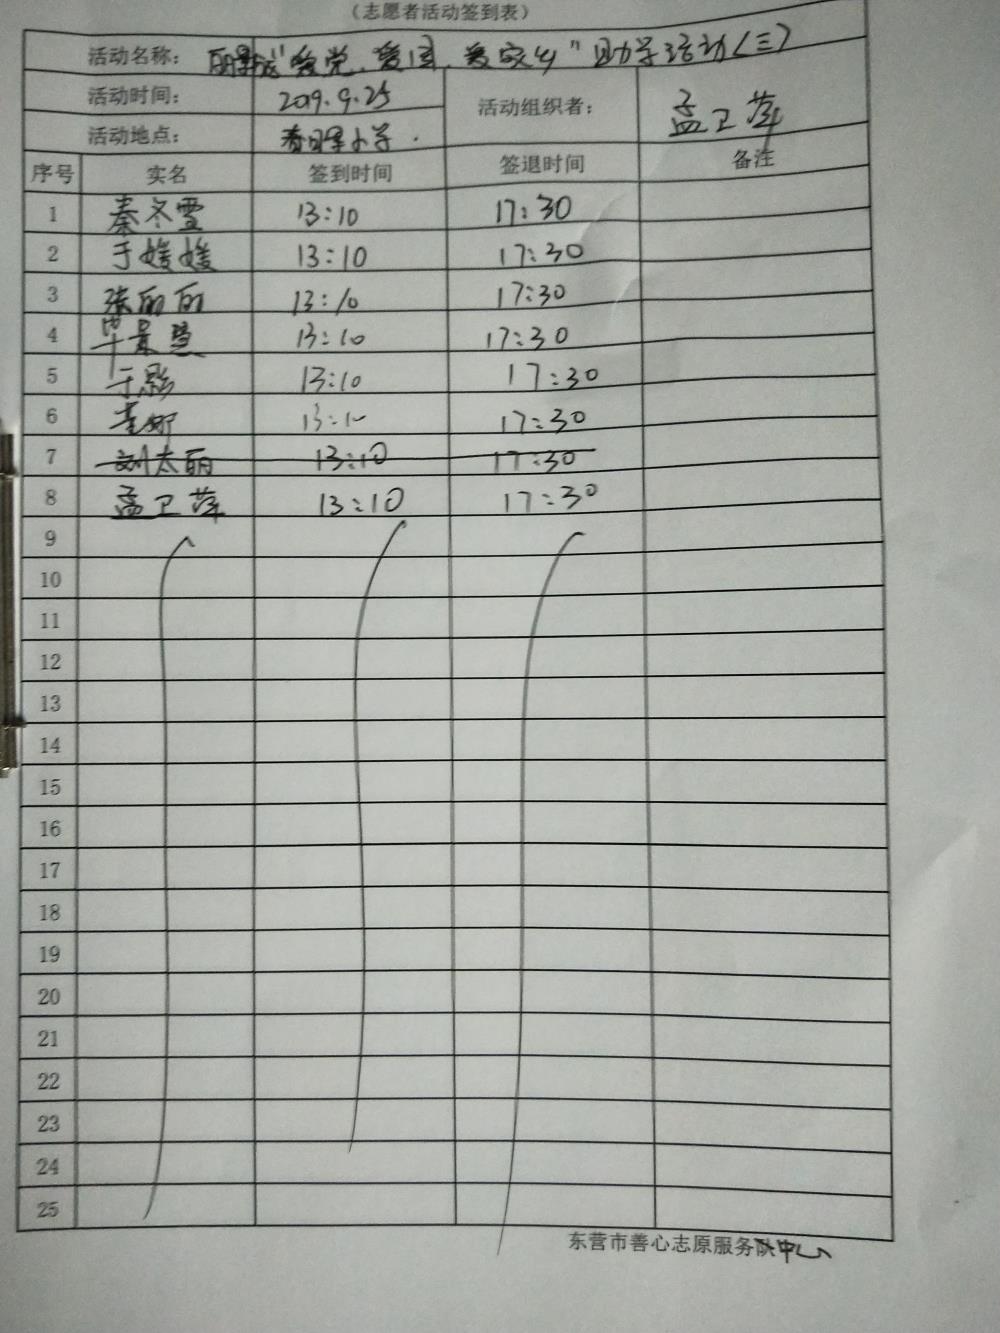 （志愿者活动签到表）
活动名称： "爱党、爱国、爱家乡"助学活动（三）
活动时间： 2019.9.25 活动组织者： 孟卫萍
活动地点： 小学.
序号 实名 签到时间 签退时间 备注
1 秦冬雪 13:10 17:30
2 于媛媛 13:10 17:30
3 张丽丽 13:10 17:30
4 13:10 17:30
5 于影 13:10 17:30
6 13:10 17:30
7 刘太丽 13:10 17:30
8 孟卫萍 13:10 17:30
9
10
11
12
13
14
15
16
17
18
19
20
21
22
23
24
25
东营市善心志原服务中心